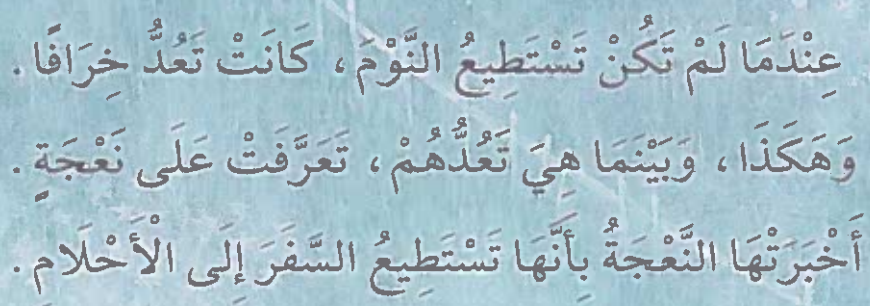 عِنْدَمَا لَمْ تَكُنْ تَسْتَطِيعُ النَّوْمَ، كَانَتْ تَعُدُّ خِرَافًا.
وَهَكَذَا، وَبَيْنَمَا هِيَ تَعُدُّهُمْ، تَعَرَّفَتْ عَلَى نَعْجَةٍ.
أَخْبَرَتْهَا النَّعْجَةُ بِأَنَّهَا تَسْتَطِيعُ السَّفَرَ إِلَى الْأَحْلَامِ.